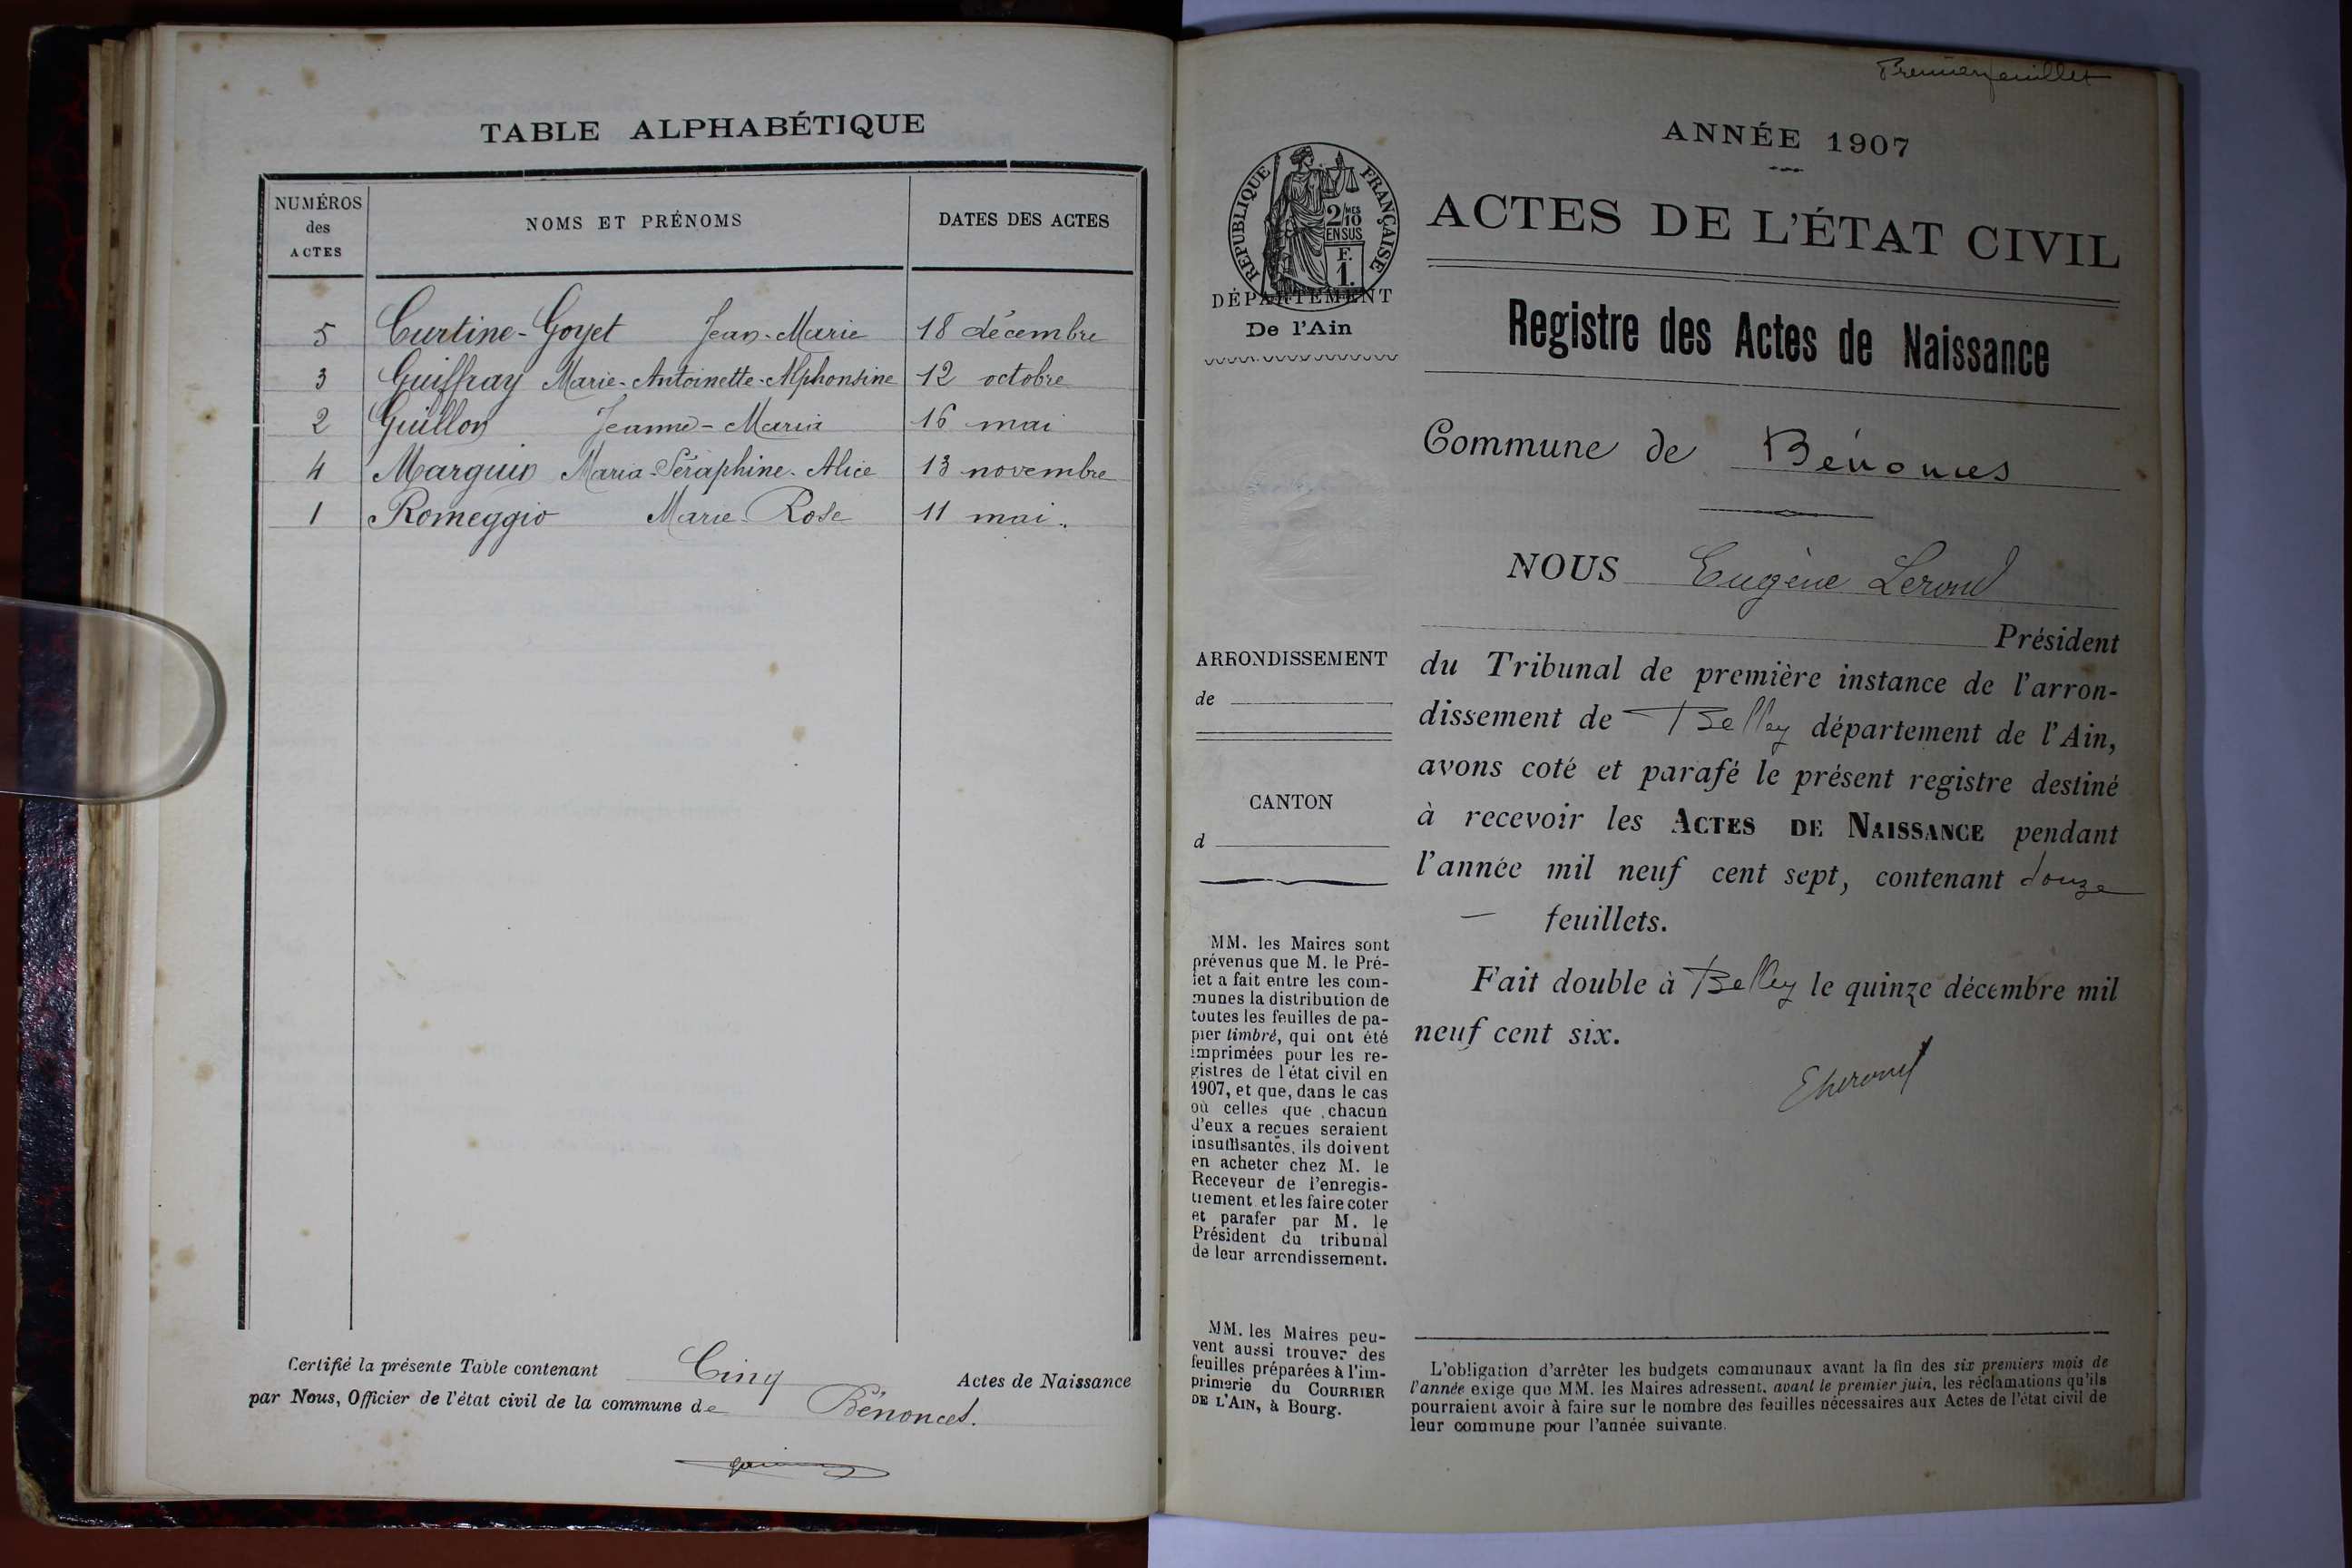 TABLE ALPHABÉTIQUE
NUMÉROS des ACTES
NOMS ET PRÉNOMS
DATES DES ACTES
5 Curtine-Goyet Jean-Marie 18 décembre
3 Guiffray Marie-Antoinette-Alphonsine 12 octobre
2 Guillon Jeanne-Maria 16 mai
4 Marguin Maria-Séraphine-Alice 13 novembre
1 Romeggio Marie-Rose 11 mai.
Certifié la présente Table contenant Cinq Actes de Naissance
par Nous, Officier de l'état civil de la commune de Bénonces.
Premier feuillet
ANNÉE 1907
RÉPUBLIQUE FRANÇAISE
2/10 MES
EN SUS
F.
1.
DÉPARTEMENT
De l'Ain
ACTES DE L'ÉTAT CIVIL
Registre des Actes de Naissance
Commune de Bénonces
NOUS Eugène Lerond
Président
du Tribunal de première instance de l'arron-
dissement de Belley département de l'Ain,
avons coté et parafé le présent registre destiné
à recevoir les ACTES DE NAISSANCE pendant
l'année mil neuf cent sept, contenant douze
— feuillets.
Fait double à Belley le quinze décembre mil
neuf cent six.
ELerond
ARRONDISSEMENT
de
CANTON
d
MM. les Maires sont
prévenus que M. le Pré-
fet a fait entre les com-
munes la distribution de
toutes les feuilles de pa-
pier timbré, qui ont été
imprimées pour les re-
gistres de l'état civil en
1907, et que, dans le cas
où celles que chacun
d'eux a reçues seraient
insuffisantes, ils doivent
en acheter chez M. le
Receveur de l'enregis-
trement et les faire coter
et parafer par M. le
Président du tribunal
de leur arrondissement.
MM. les Maires peu-
vent aussi trouver des
feuilles préparées à l'im-
primerie du COURRIER
DE L'AIN, à Bourg.
L'obligation d'arrêter les budgets communaux avant la fin des six premiers mois de
l'année exige que MM. les Maires adressent, avant le premier juin, les réclamations qu'ils
pourraient avoir à faire sur le nombre des feuilles nécessaires aux Actes de l'état civil de
leur commune pour l'année suivante.